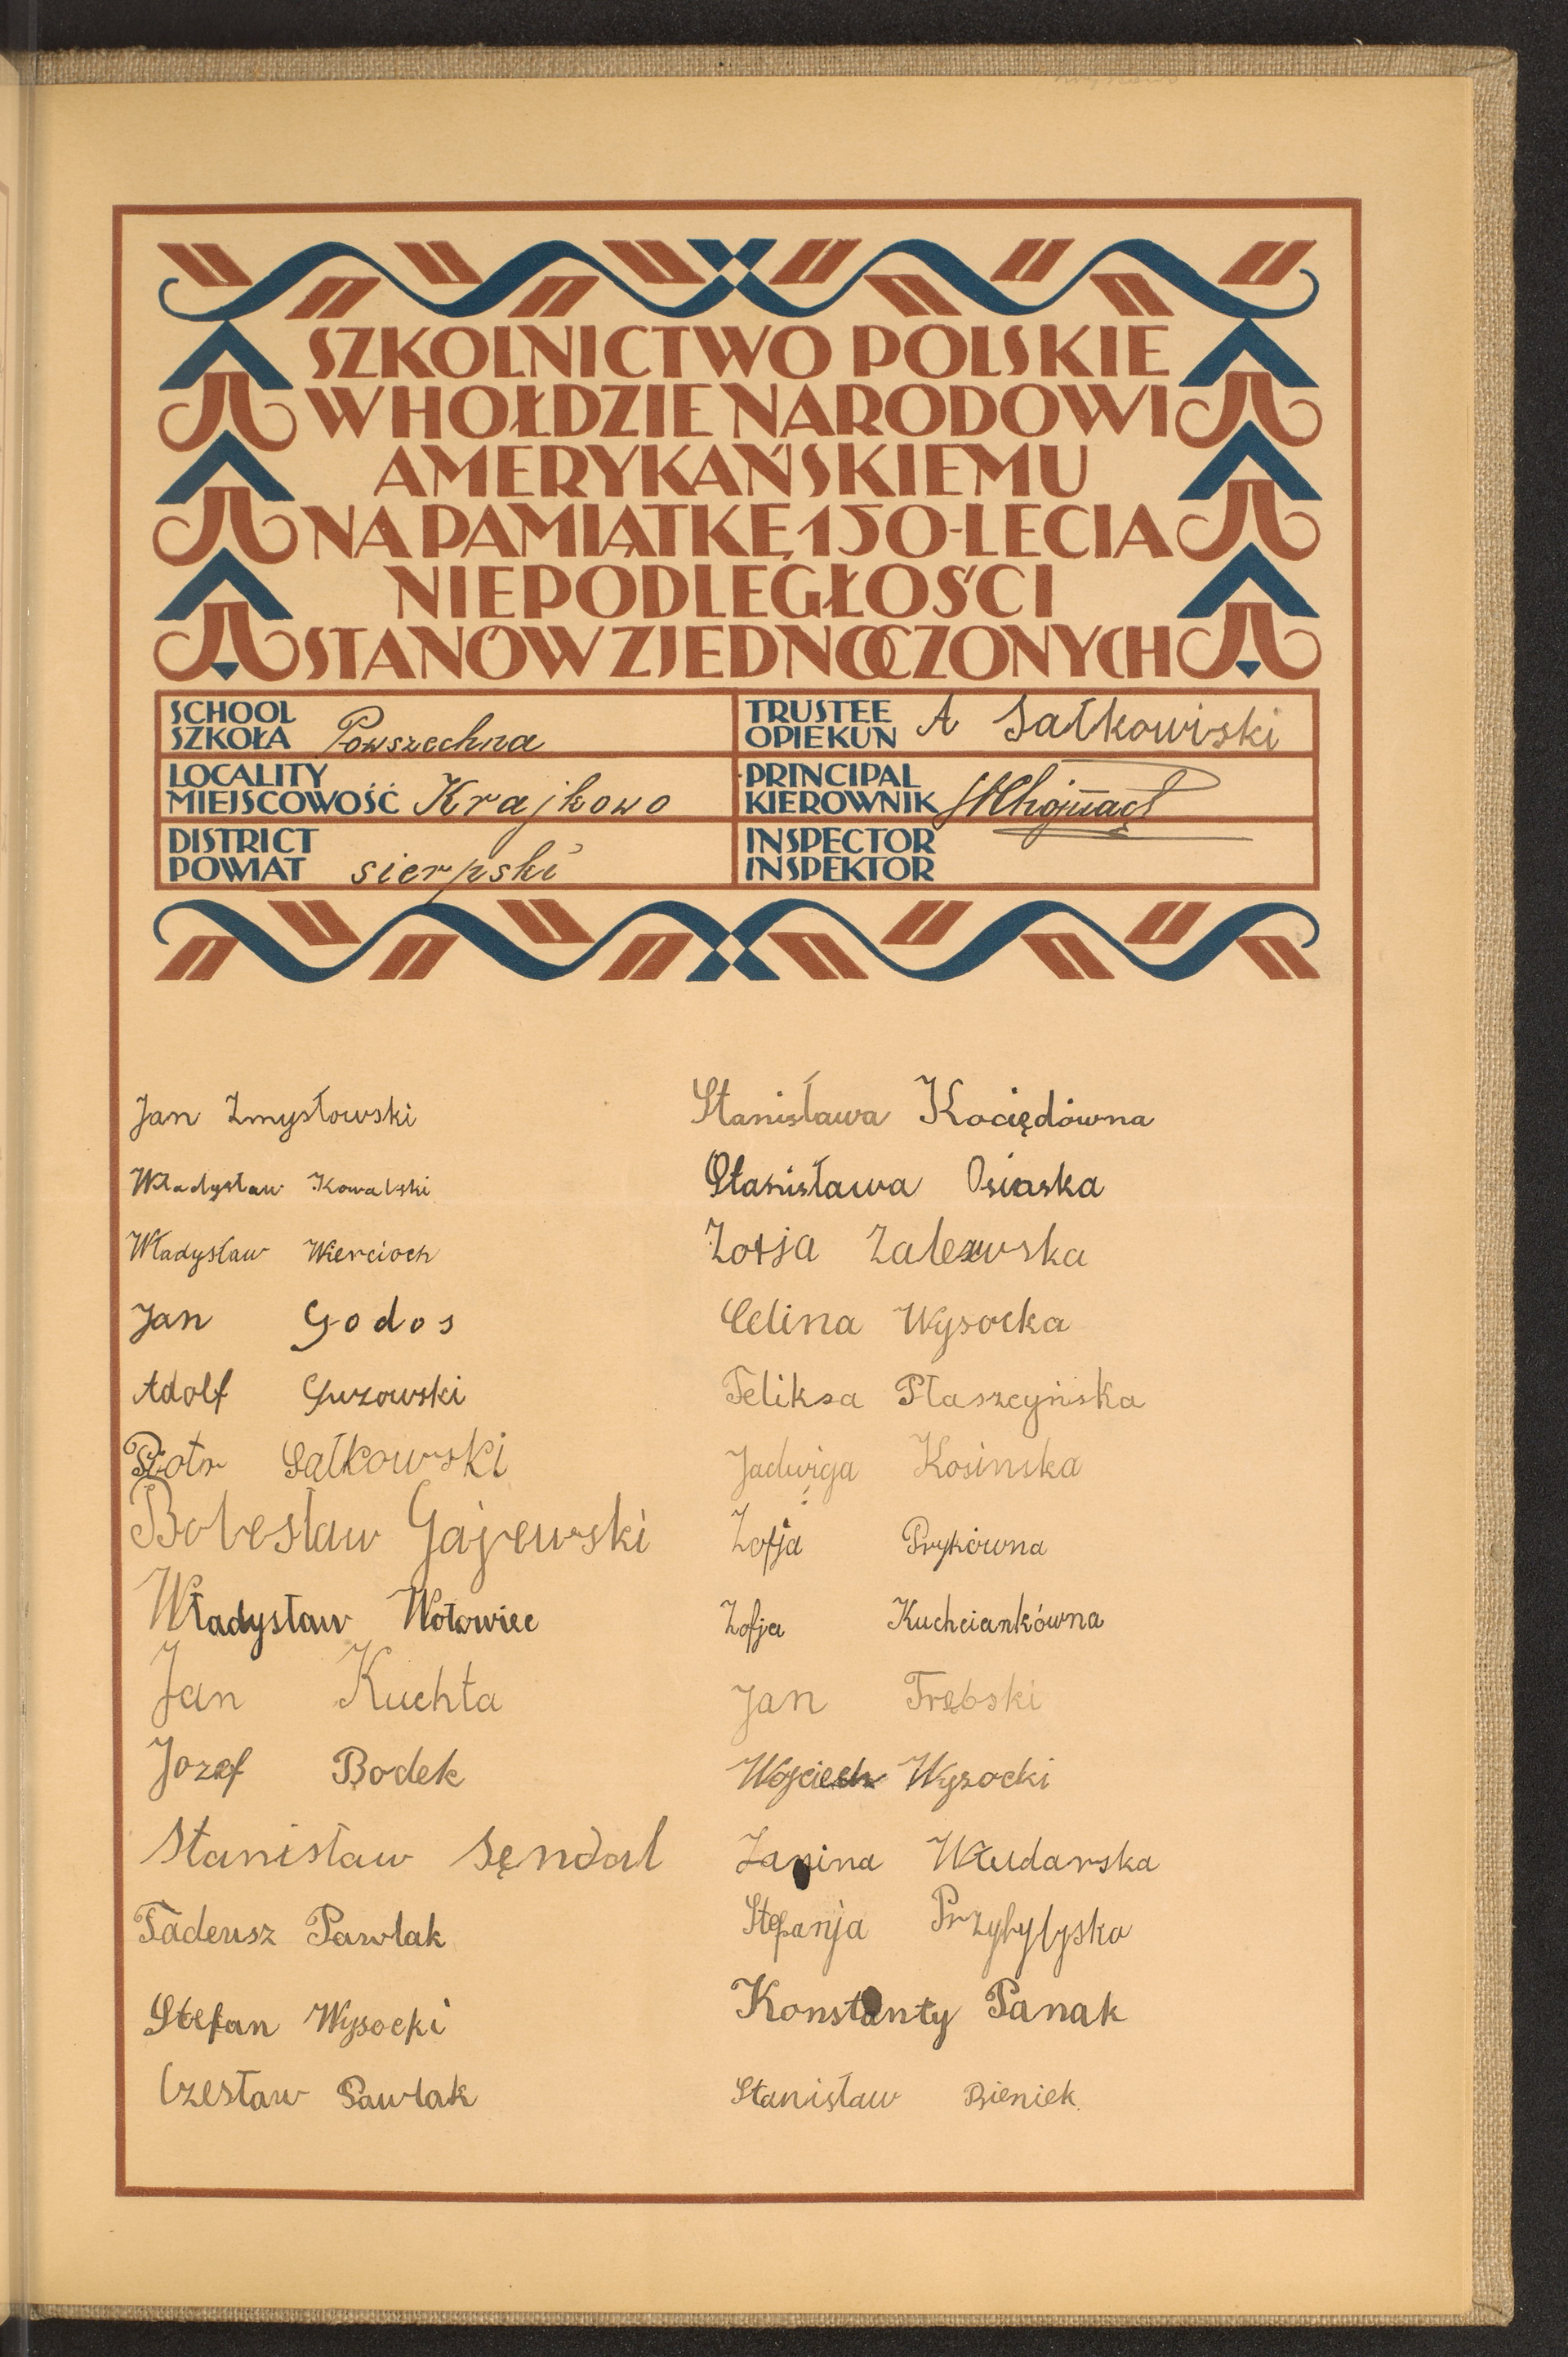 SZKOLNICTWO POLSKIE
W HOŁDZIE NARODOWI
AMERYKAŃSKIEMU
NA PAMIĄTKĘ 150-LECIA
NIEPODLEGŁOŚCI
STANÓW ZJEDNOCZONYCH
SCHOOL
SZKOŁA Powszechna
LOCALITY
MIEJSCOWOŚĆ Krajkowo
DISTRICT
POWIAT sierpski
TRUSTEE
OPIEKUN A Sałkowiski
PRINCIPAL
KIEROWNIK
INSPECTOR
INSPEKTOR
Jan Zmysłowski
Władysław Kowalski
Władysław Wiercioch
Jan Godos
Adolf Guzowski
Piotr Sałkowski
Bolesław Gajewski
Władysław Wołowiec
Jan Kuchta
Jozef Bodek
Stanisław Sęndal
Tadeusz Pawlak
Stefan Wysocki
Czesław Pawlak
Stanisława Kociędówna
Stanisława Osiaska
Zofja Zalewska
Celina Wysocka
Feliksa Płaszczyńska
Jadwiga Kosinska
Zofja Prykówna
Zofja Kuchciankówna
Jan Trębski
Wojciech Wysocki
Janina Włudarska
Stefanja Przybylyska
Konstanty Panak
Stanisław Bieniek.